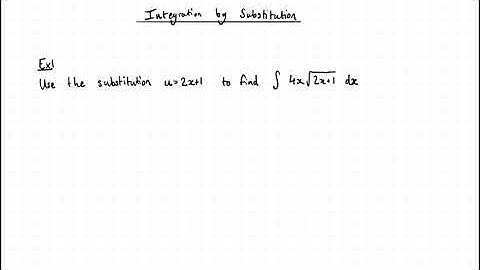 Integration by Substitution
Ex1
Use the substitution u=2x+1 to find ∫ 4x√(2x+1) dx